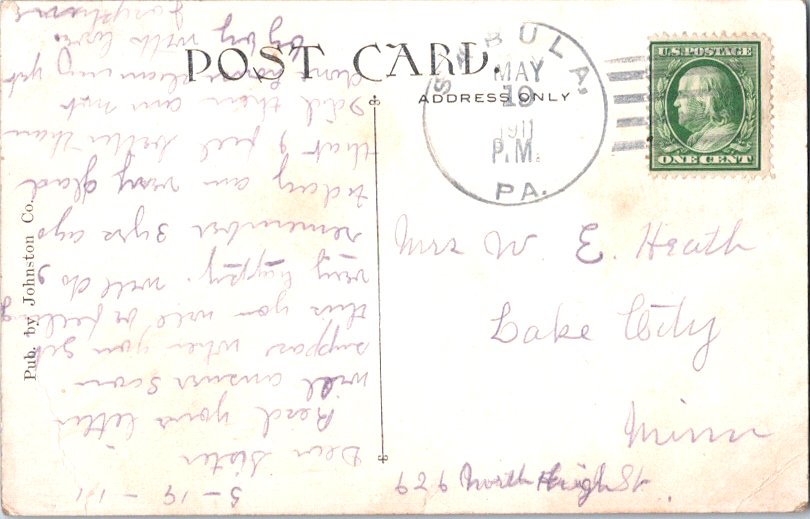 POST CARD.
ADDRESS ONLY
SABULA,
MAY
19
1911
P.M.
PA.
U.S. POSTAGE
ONE CENT
Mrs W. E. Heath
Lake City
Minn
929 North High St.
Pub. by Johnston Co.
5-19-11
Dear Sister
Recd your letter
will answer soon.
suppose when you get
this you will be feeling
very happy. well do I
remember 3 yrs ago
today am very glad
that I feel better than
I did then am not
done house cleaning yet
by by with love.